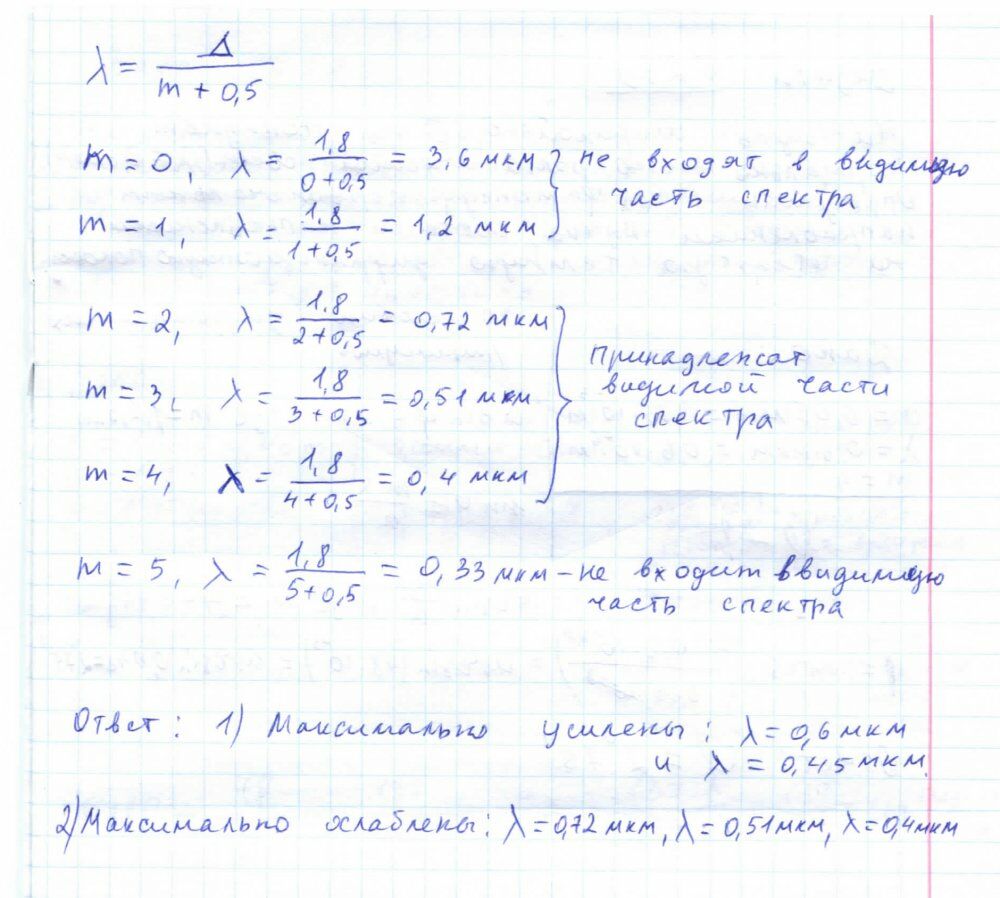 λ = Δ / (m + 0,5)
m = 0, λ = 1,8 / (0+0,5) = 3,6 мкм } не входят в видимую
часть спектра
m = 1, λ = 1,8 / (1+0,5) = 1,2 мкм
m = 2, λ = 1,8 / (2+0,5) = 0,72 мкм
принадлежат
m = 3, λ = 1,8 / (3+0,5) = 0,51 мкм } видимой части
спектра
m = 4, λ = 1,8 / (4+0,5) = 0,4 мкм
m = 5, λ = 1,8 / (5+0,5) = 0,33 мкм – не входит в видимую
часть спектра
Ответ: 1) Максимально усилены: λ = 0,6 мкм
и λ = 0,45 мкм.
2) Максимально ослаблены: λ = 0,72 мкм, λ = 0,51 мкм, λ = 0,4 мкм